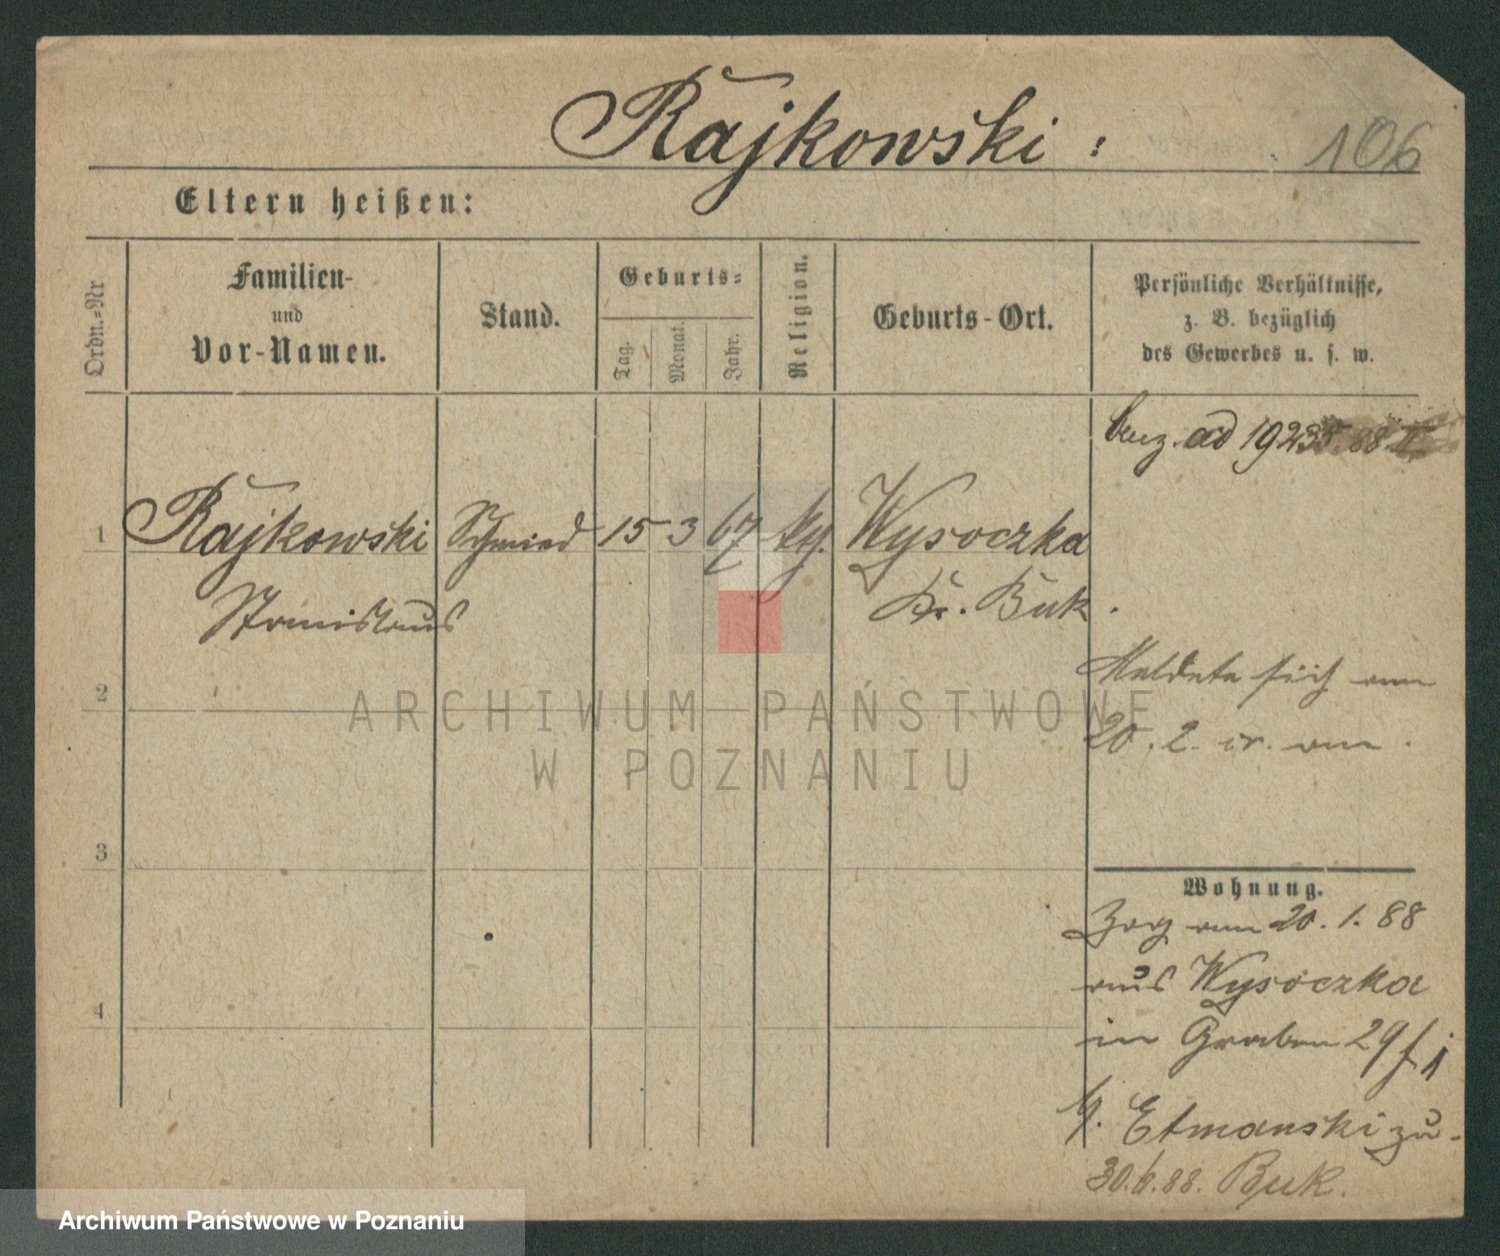 Rajkowski :
106
Eltern heißen:
Ordn.-Nr
Familien-
und
Vor-Namen.
Stand.
Geburts-
Tag.
Monat.
Jahr.
Religion.
Geburts-Ort.
Persönliche Verhältnisse,
z. B. bezüglich
des Gewerbes u. s. w.
ad
1 Rajkowski Schmied 15 3 67 Wysoczka
Stanislaus
Kr. Buk.
Meldete sich am
20. 2. cr. an.
2
3
4
Wohnung.
Zog am 20. 1. 88
aus Wysoczka
in Graben 29
b. Etmanski zu.
30.6.88. Buk.
ARCHIWUM PAŃSTWOWE
W POZNANIU
Archiwum Państwowe w Poznaniu